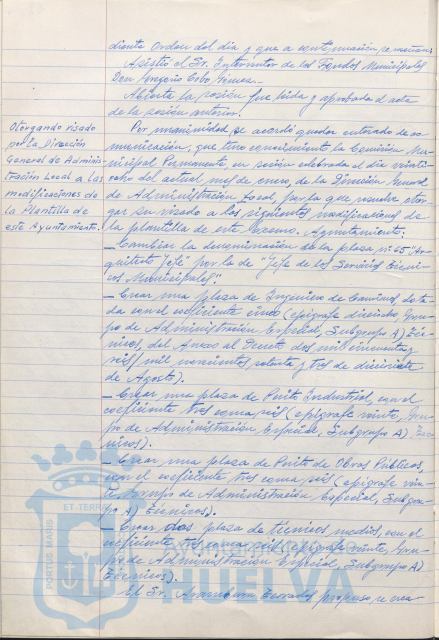 diente Orden del día y que a continuación se reseñan:
Asistió el Sr. Interventor de los Fondos Municipales
Don Gregorio Cobo Gómez.-
Abierta la sesión fue leída y aprobada el acta
de la sesión anterior.
Otorgando visado
por la Dirección
General de Adminis-
tración Local a las
modificaciones de
la Plantilla de
este Ayuntamiento.
Por unanimidad se acordó quedar enterado de co-
municación, que tuvo conocimiento la Comisión Mu-
nicipal Permanente, en sesión celebrada el día veinti-
ocho del actual mes de enero, de la Dirección General
de Administración Local, por la que resuelve otor-
gar su visado a las siguientes modificaciones de
la plantilla de este Excmo. Ayuntamiento:
- Cambiar la denominación de la plaza nº 65 "Ar-
quitecto Jefe" por la de "Jefe de los Servicios Técni-
cos Municipales".
- Crear una plaza de Ingeniero de Caminos, dota-
da con el coeficiente cinco (epígrafe dieciocho, Gru-
po de Administración Especial, Subgrupo A) Téc-
nicos, del Anexo al Decreto dos mil cincuenta y
seis/mil novecientos setenta y tres de diecisiete
de Agosto).
- Crear una plaza de Perito Industrial, con el
coeficiente tres coma seis (epígrafe veinte, Gru-
po de Administración Especial, Subgrupo A) Téc-
nicos).
- Crear una plaza de Perito de Obras Públicas,
con el coeficiente tres coma seis (epígrafe vein-
te, Grupo de Administración Especial, Subgru-
po A) Técnicos).
- Crear dos plaza de técnicos medios, con el
coeficiente tres coma seis (epígrafe veinte, Gru-
po de Administración Especial, Subgrupo A)
Técnicos).
El Sr. Aramburu Cerrados propuso se crea-
PORTUS MARIS
ET TERRÆ
Ayuntamiento
HUELVA